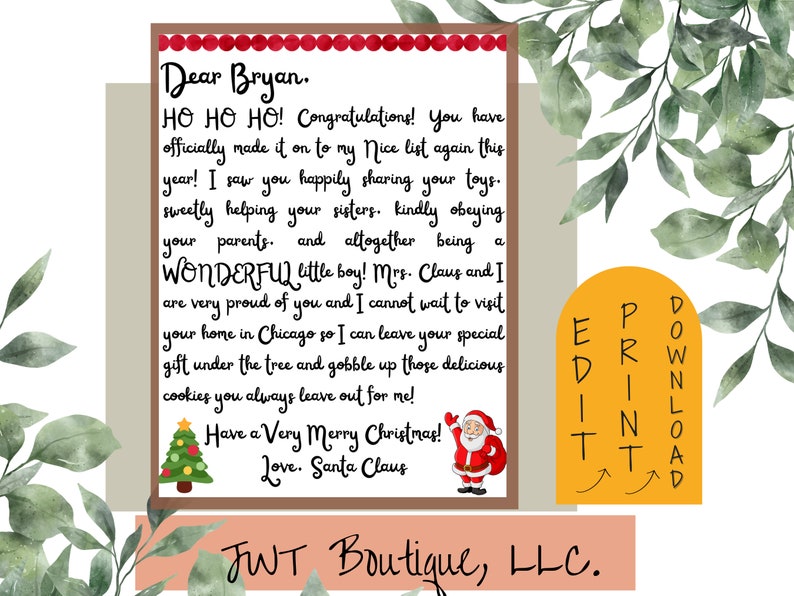 Dear Bryan,
HO HO HO! Congratulations! You have
officially made it on to my Nice list again this
year! I saw you happily sharing your toys,
sweetly helping your sisters, kindly obeying
your parents, and altogether being a
WONDERFUL little boy! Mrs. Claus and I
are very proud of you and I cannot wait to visit
your home in Chicago so I can leave your special
gift under the tree and gobble up those delicious
cookies you always leave out for me!
Have a Very Merry Christmas!
Love, Santa Claus
EDIT
PRINT
DOWNLOAD
JWT Boutique, LLC.